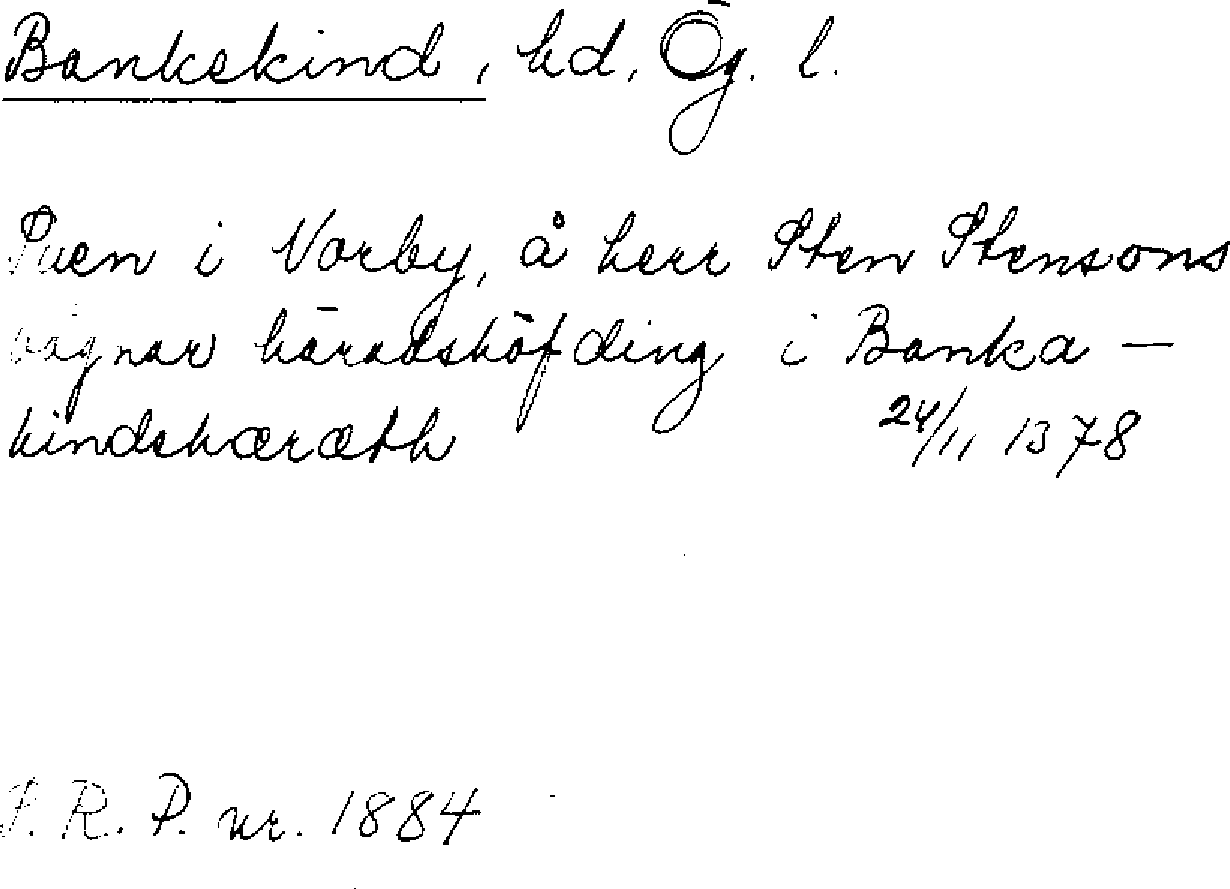 Bankekind, hd, Ög. l.
Suen i Norby, å herr Sten Stensons
vägnar häradshöfding i Banka-
kindshæræth 24/11 1378
S. R. P. nr. 1884